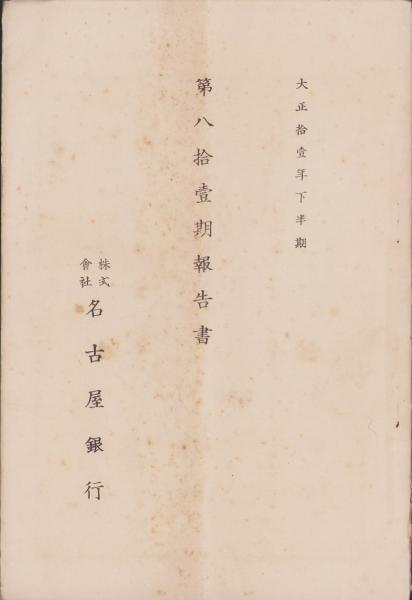 大正拾壹年下半期
第八拾壹期報告書
株式會社名古屋銀行